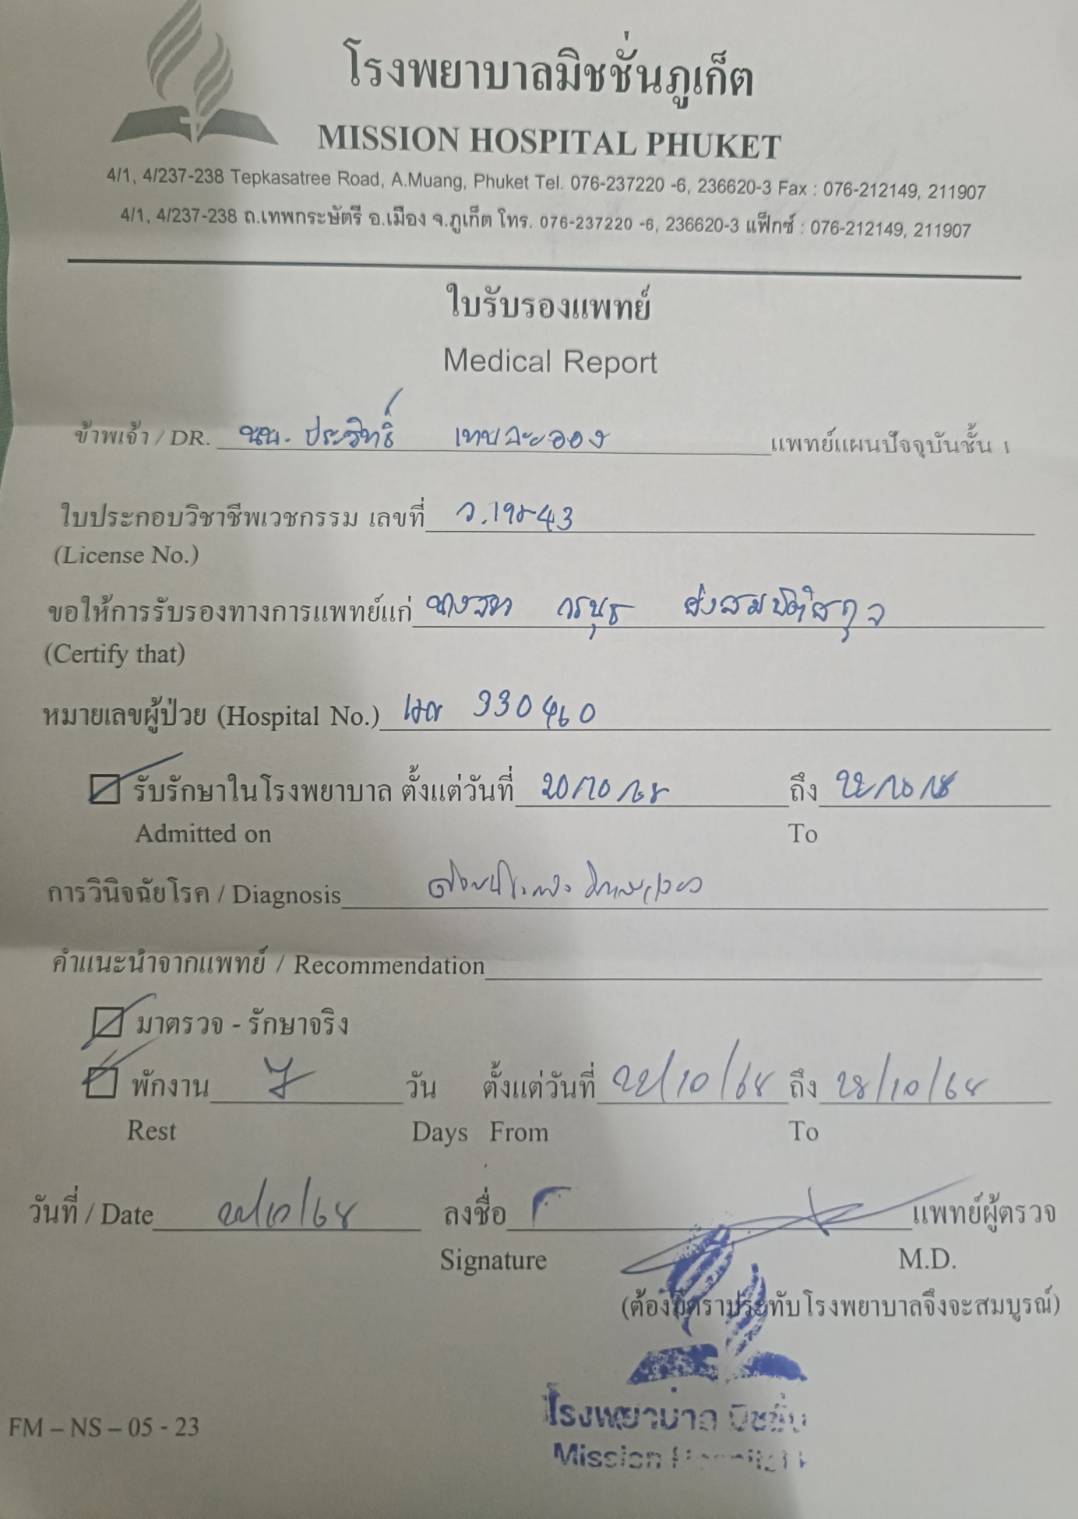 โรงพยาบาลมิชชั่นภูเก็ต
MISSION HOSPITAL PHUKET
4/1, 4/237-238 Tepkasatree Road, A.Muang, Phuket Tel. 076-237220 -6, 236620-3 Fax : 076-212149, 211907
4/1, 4/237-238 ถ.เทพกระษัตรี อ.เมือง จ.ภูเก็ต โทร. 076-237220 -6, 236620-3 แฟ็กซ์ : 076-212149, 211907
ใบรับรองแพทย์
Medical Report
ข้าพเจ้า / DR. นพ. ประสิทธิ์ เทพละออง แพทย์แผนปัจจุบันชั้น 1
ใบประกอบวิชาชีพเวชกรรม เลขที่ ว.19843
(License No.)
ขอให้การรับรองทางการแพทย์แก่ นางสาว
(Certify that)
หมายเลขผู้ป่วย (Hospital No.) 330460
รับรักษาในโรงพยาบาล ตั้งแต่วันที่ 20/10/68 ถึง 22/10/68
Admitted on To
การวินิจฉัยโรค / Diagnosis
คำแนะนำจากแพทย์ / Recommendation
มาตรวจ - รักษาจริง
พักงาน 7 วัน ตั้งแต่วันที่ 22/10/68 ถึง 28/10/68
Rest Days From To
วันที่ / Date 22/10/68 ลงชื่อ แพทย์ผู้ตรวจ
Signature M.D.
(ต้องมีตราประทับโรงพยาบาลจึงจะสมบูรณ์)
โรงพยาบาล มิชชั่น
Mission Hospital
FM – NS – 05 - 23